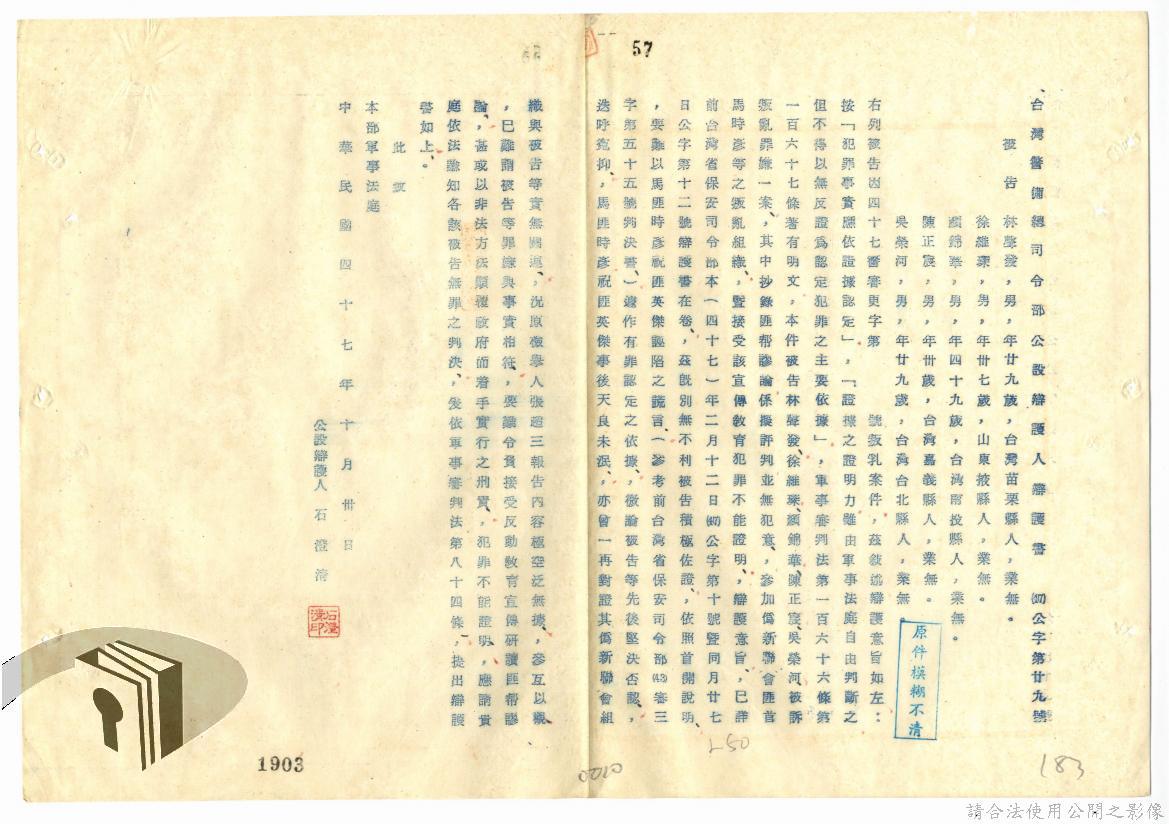 57
台灣警備總司令部公設辯護人辯護書 ㈣公字第廿九號
被告 林聲發,男,年廿九歲,台灣苗栗縣人,業無。
徐維琛,男,年卅七歲,山東掖縣人,業無。
顏錦華,男,年四十九歲,台灣南投縣人,業無。
陳正宸,男,年卅歲,台灣嘉義縣人,業無。
吳榮河,男,年廿九歲,台灣台北縣人,業無
右列被告因四十七審更字第 號叛乱案件,茲敘述辯護意旨如左:
按「犯罪事實應依證據認定」,「證據之證明力雖由軍事法庭自由判斷之
但不得以無反證為認定犯罪之主要依據」,軍事審判法第一百六十六條第
一百六十七條著有明文,本件被告林聲發、徐維琛、顏錦華、陳正宸、吳榮河被訴
叛亂罪嫌一案,其中抄錄匪幫謬論係擬評判並無犯意,參加偽新聯會匪首
馬時彥等之叛亂組織,暨接受該宣傳教育犯罪不能證明,辯護意旨,已詳
前台灣省保安司令部本(四十七)年二月十二日 公字第十號暨同月廿七
日公字第十二號辯護書在卷,茲既別無不利被告積極佐證,依照首開說明
,要難以馬匪時彥祝匪英傑誣陷之謊言(參考前台灣省保安司令部㊷審三
字第五十五號判決書)遽作有罪認定之依據,徵論被告等先後堅決否認,
迭呼寃抑,馬匪時彥祝匪英傑事後天良未泯,亦曾一再對證其偽新聯會組
織與被告等實無關連,況原檢舉人張超三報告內容極空泛無據,參互以觀
,已難謂被告等罪嫌與事實相符,要議令負接受反動教育宣傳研讀匪幫謬
論,甚或以非法方法顛覆政府而着手實行之刑責,犯罪不能證明,應請貴
庭依法諭知各該被告無罪之判決,爰依軍事審判法第八十四條,提出辯護
書如上。
此致
本部軍事法庭
中華民國四十七年十月卅日
公設辯護人 石澄清
石澄清印
原件模糊不清
1903
150
183
請合法使用公開之影像